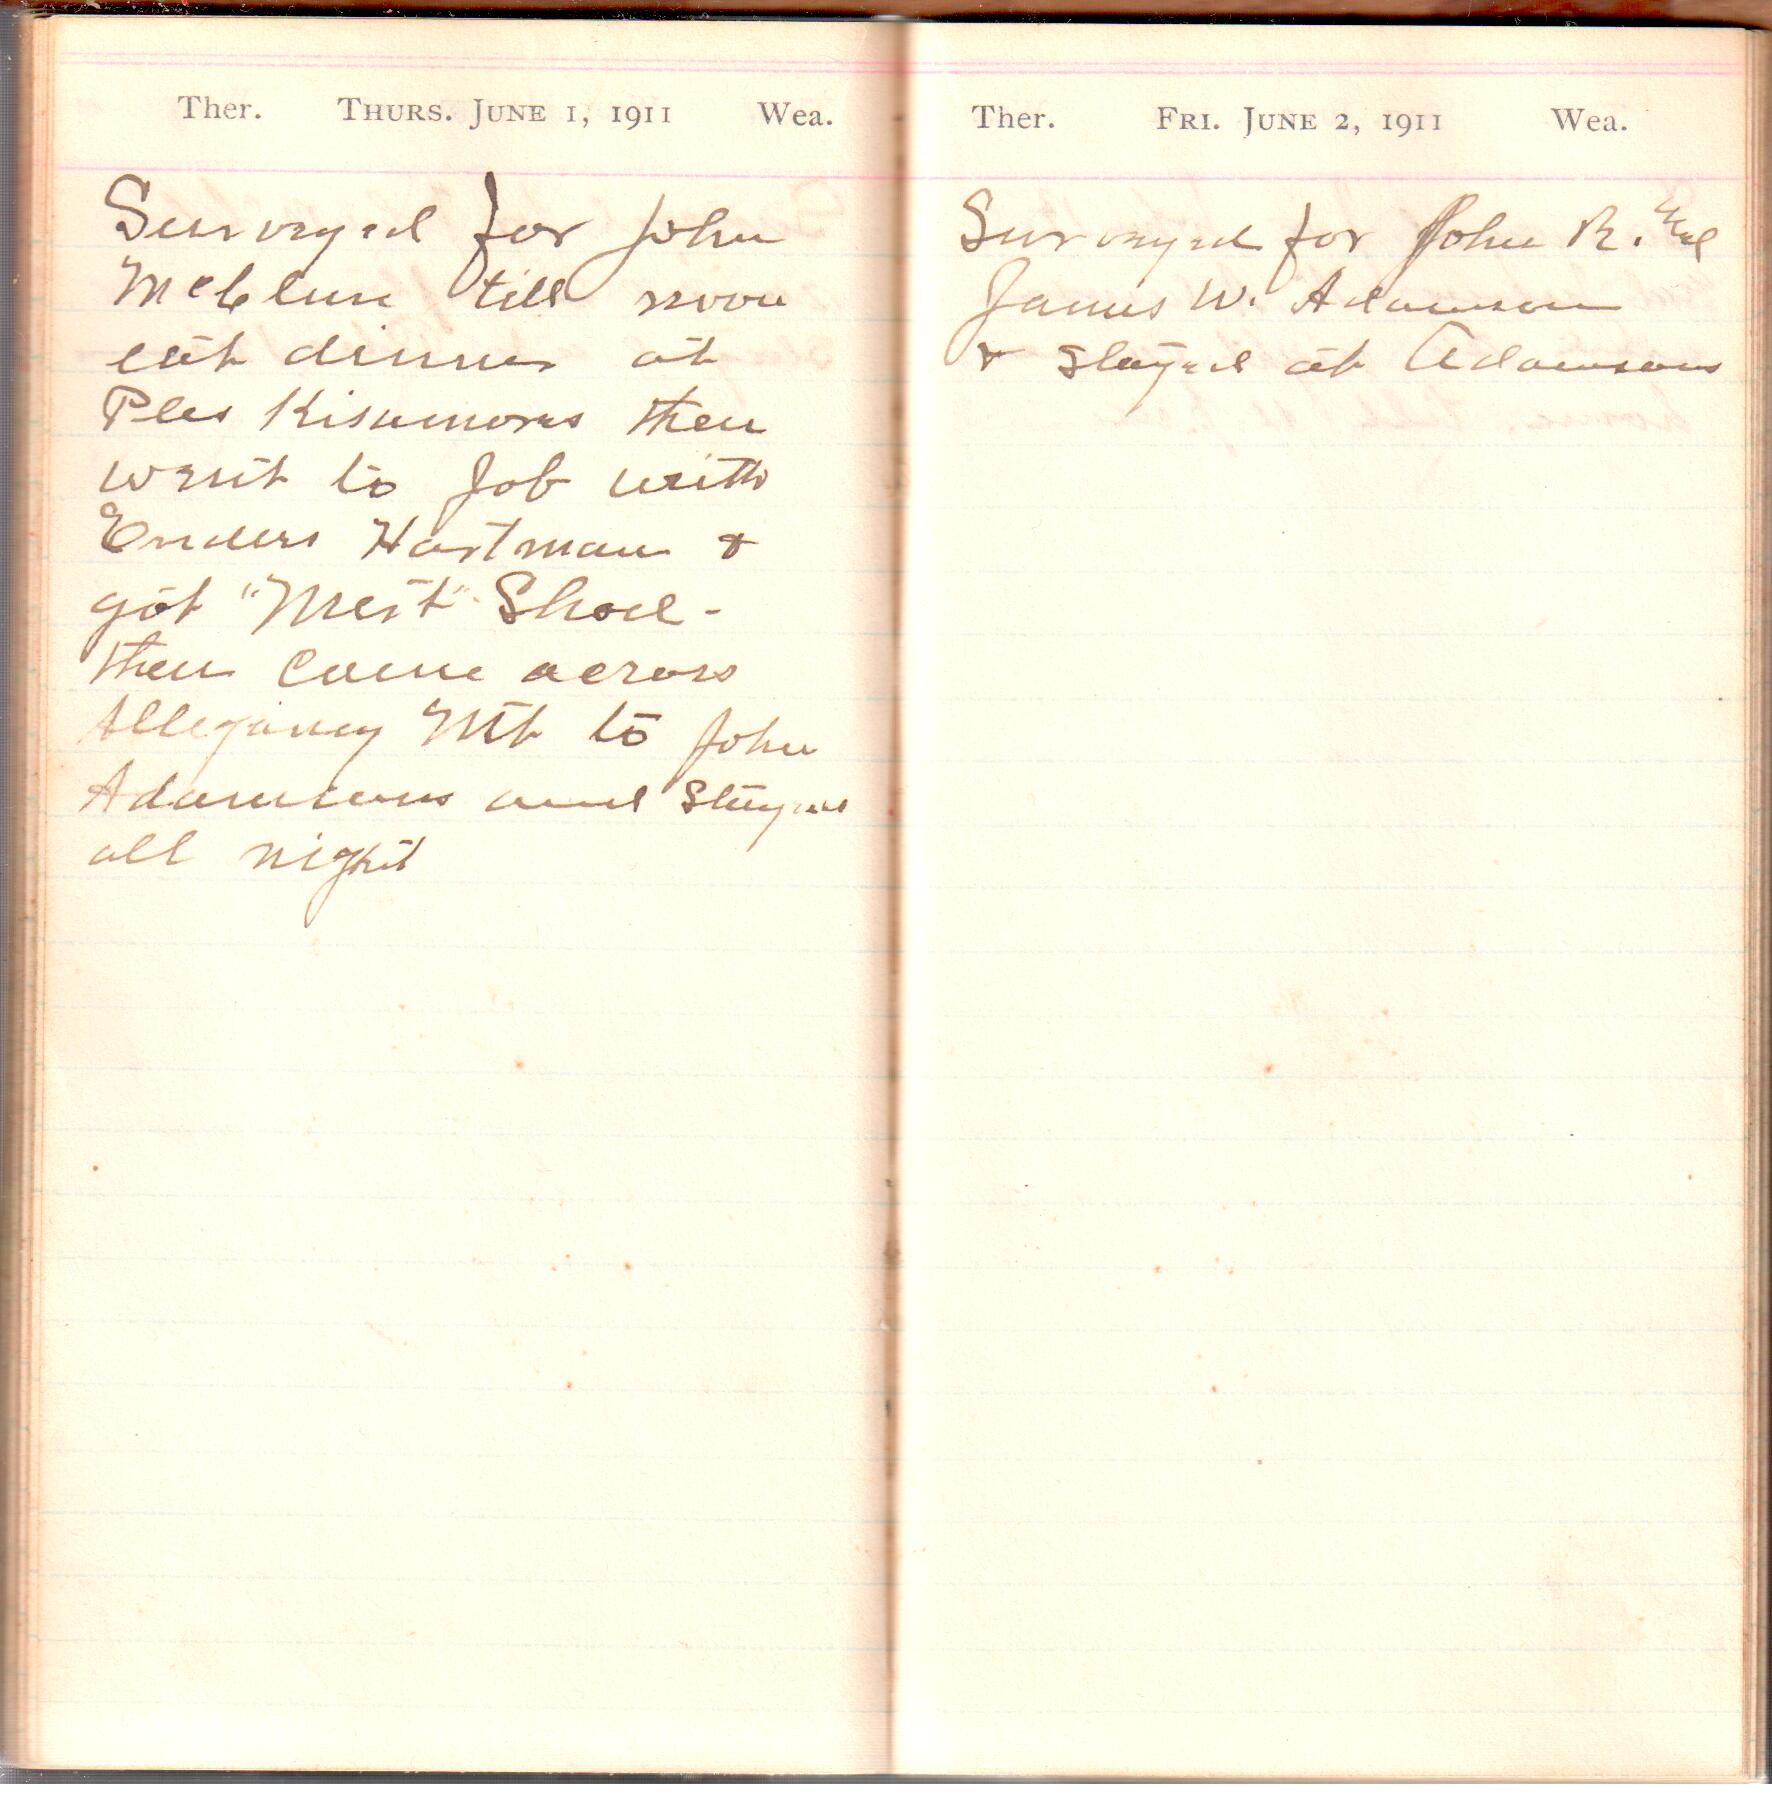 Ther. THURS. JUNE 1, 1911 Wea.
Surveyed for John
McClure till noon
eat dinner at
Ples Kisamores then
went to Job with
Enders Hartman &
got "Mert" Shoed -
then came across
Allegany Mt to John
Adamsons and stayed
all night
Ther. FRI. JUNE 2, 1911 Wea.
Surveyed for John R. and
James W. Adamson
& stayed at Adamsons